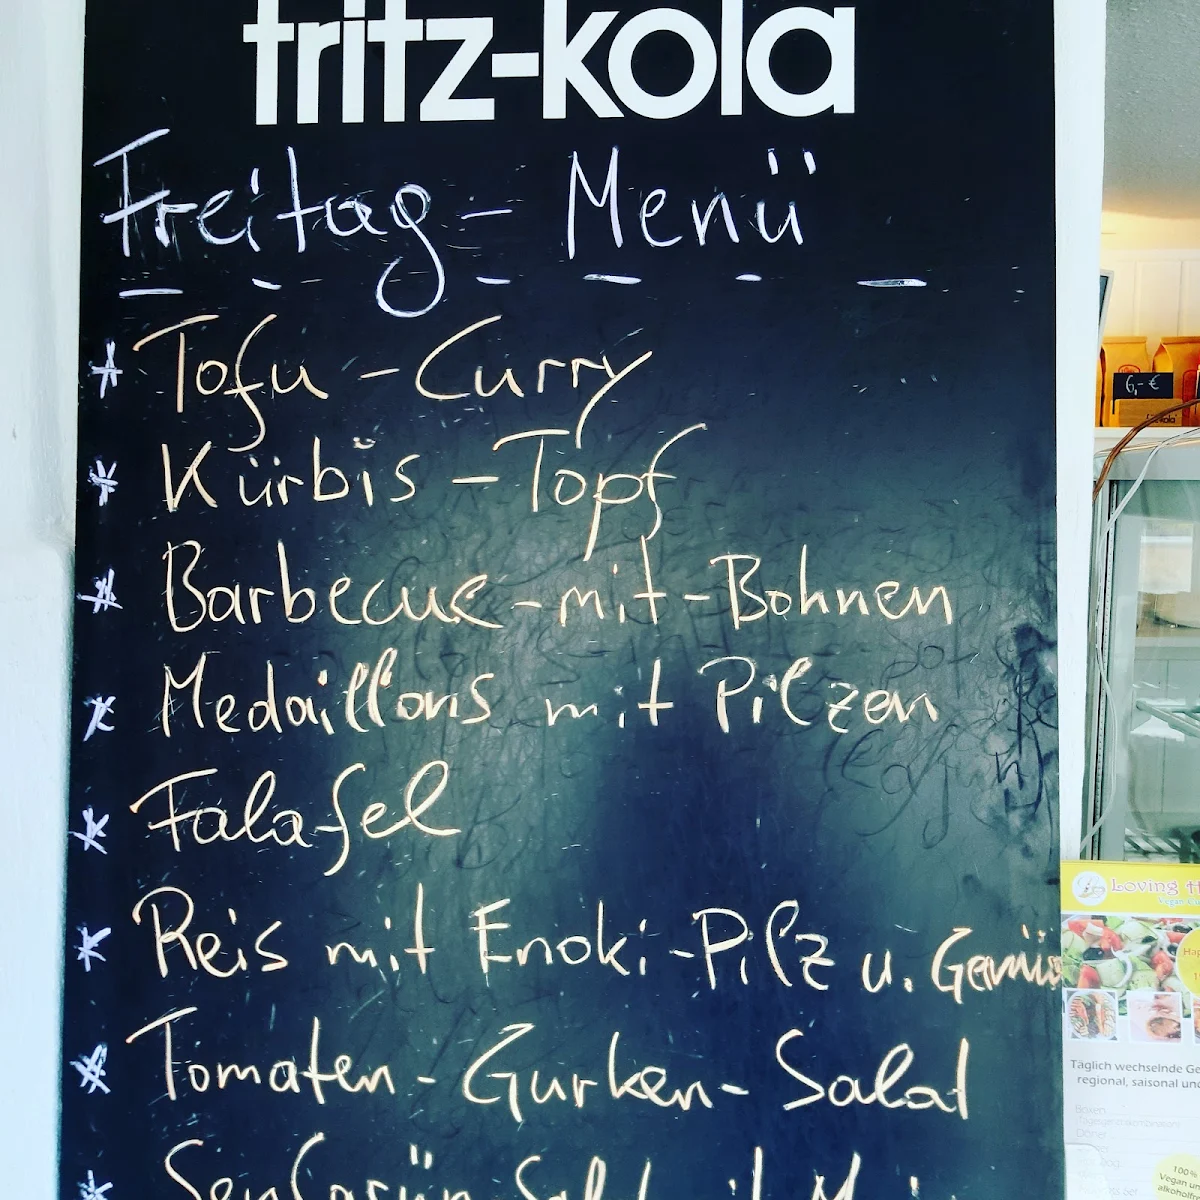 fritz-kola
Freitag - Menü
* Tofu - Curry
* Kürbis - Topf
* Barbecue - mit - Bohnen
* Medaillons mit Pilzen
* Falafel
* Reis mit Enoki - Pilz u. Gemüs
* Tomaten - Gurken - Salat
6,- €
Loving H
Täglich wechselnde Ge
regional, saisonal und
Boxen
100%
Vegan un